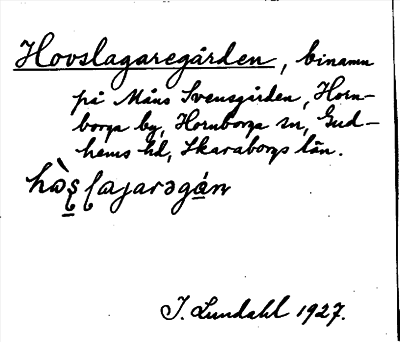 Hovslagaregården, binamn
på Måns Svensgården, Horn-
borga by, Hornborga sn, Gud-
hems hd, Skaraborgs län.
I. Lundahl 1927.